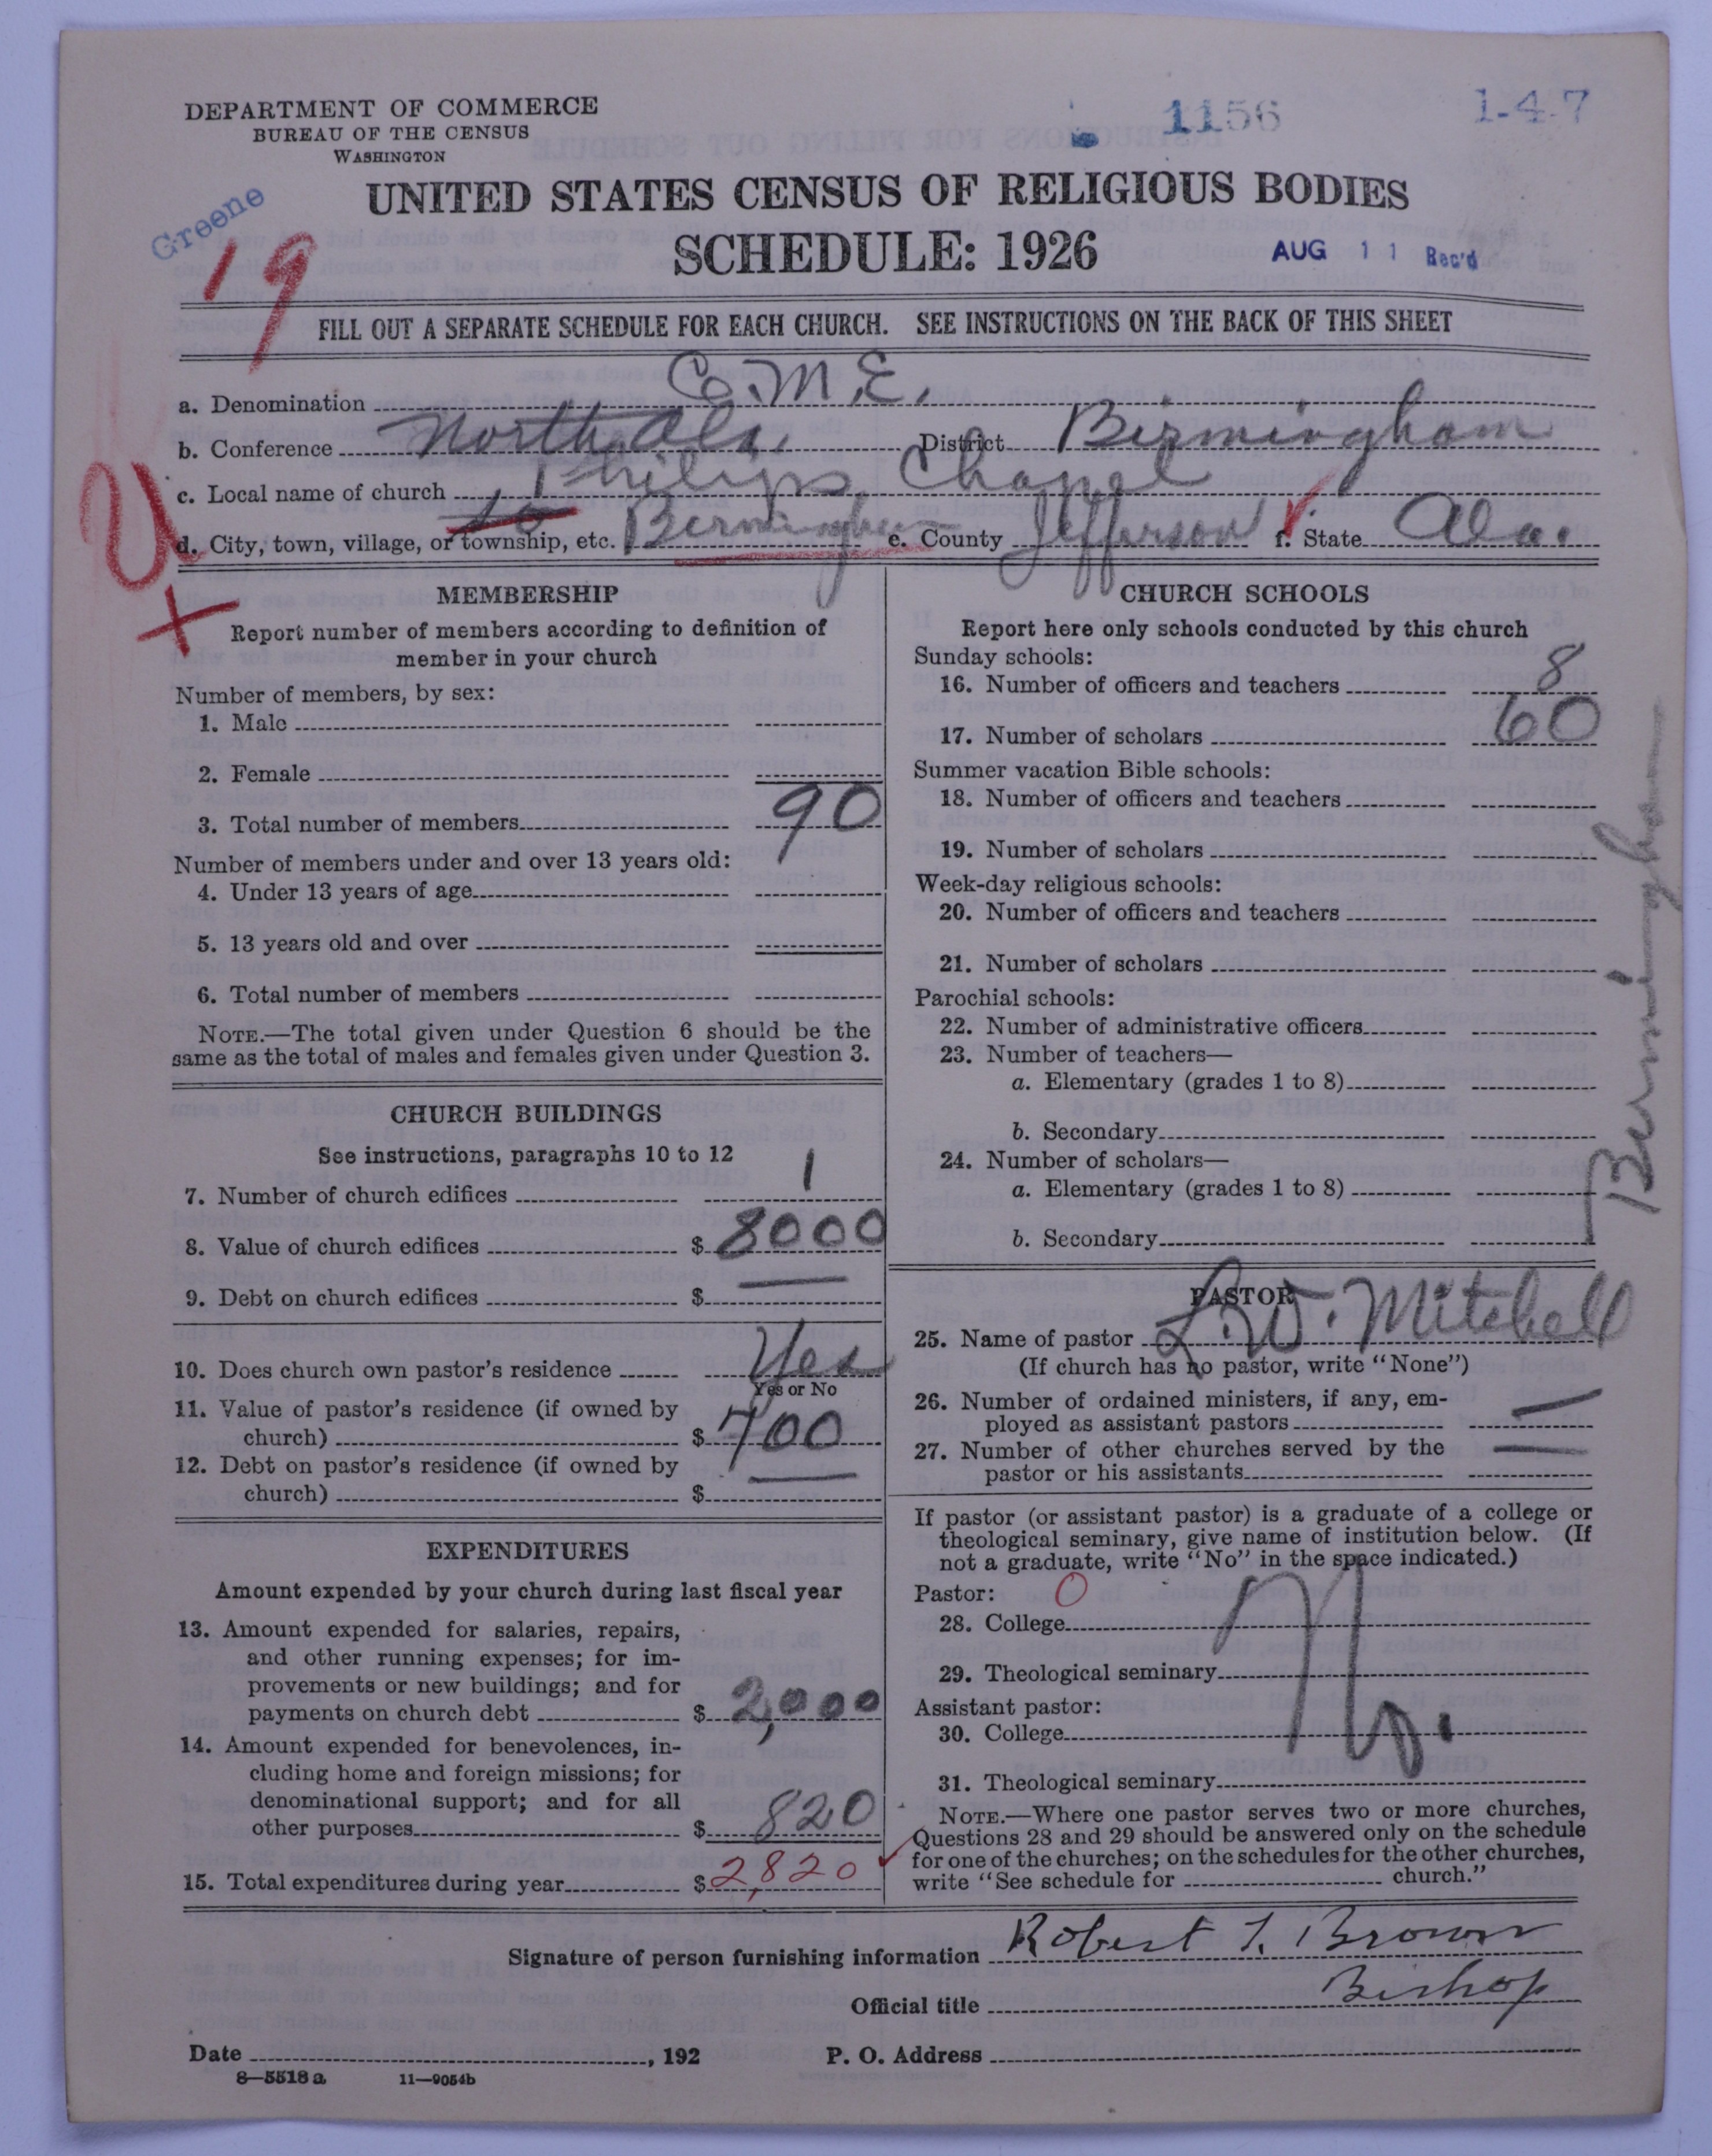 DEPARTMENT OF COMMERCE
BUREAU OF THE CENSUS
WASHINGTON
1156
1-4-7
Greene
19
UNITED STATES CENSUS OF RELIGIOUS BODIES
SCHEDULE: 1926
AUG 11 Rec'd
FILL OUT A SEPARATE SCHEDULE FOR EACH CHURCH. SEE INSTRUCTIONS ON THE BACK OF THIS SHEET
a. Denomination C. M. E.
b. Conference North Ala. District Birmingham
c. Local name of church Philips Chapel
d. City, town, village, or township, etc. Birmingham e. County Jefferson f. State Ala.
U
MEMBERSHIP
Report number of members according to definition of
member in your church
Number of members, by sex:
1. Male
2. Female
3. Total number of members 90
Number of members under and over 13 years old:
4. Under 13 years of age
5. 13 years old and over
6. Total number of members
NOTE.—The total given under Question 6 should be the
same as the total of males and females given under Question 3.
CHURCH BUILDINGS
See instructions, paragraphs 10 to 12
7. Number of church edifices 1
8. Value of church edifices $ 8000
9. Debt on church edifices $ —
10. Does church own pastor's residence Yes
Yes or No
11. Value of pastor's residence (if owned by
church) $ 700
12. Debt on pastor's residence (if owned by
church) $ —
EXPENDITURES
Amount expended by your church during last fiscal year
13. Amount expended for salaries, repairs,
and other running expenses; for im-
provements or new buildings; and for
payments on church debt $ 2,000
14. Amount expended for benevolences, in-
cluding home and foreign missions; for
denominational support; and for all
other purposes $ 820
15. Total expenditures during year $ 2,820
CHURCH SCHOOLS
Report here only schools conducted by this church
Sunday schools:
16. Number of officers and teachers 8
17. Number of scholars 60
Summer vacation Bible schools:
18. Number of officers and teachers
19. Number of scholars
Week-day religious schools:
20. Number of officers and teachers
21. Number of scholars
Parochial schools:
22. Number of administrative officers
23. Number of teachers—
a. Elementary (grades 1 to 8)
b. Secondary
24. Number of scholars—
a. Elementary (grades 1 to 8)
b. Secondary
Birmingham
PASTOR
25. Name of pastor L. W. Mitchell
(If church has no pastor, write "None")
26. Number of ordained ministers, if any, em-
ployed as assistant pastors —
27. Number of other churches served by the
pastor or his assistants —
If pastor (or assistant pastor) is a graduate of a college or
theological seminary, give name of institution below. (If
not a graduate, write "No" in the space indicated.)
Pastor: 0
28. College
29. Theological seminary No.
Assistant pastor:
30. College
31. Theological seminary
NOTE.—Where one pastor serves two or more churches,
Questions 28 and 29 should be answered only on the schedule
for one of the churches; on the schedules for the other churches,
write "See schedule for church."
Signature of person furnishing information Robert T. Brown
Official title Bishop
Date , 192 P. O. Address
8—5518 a 11—9054b